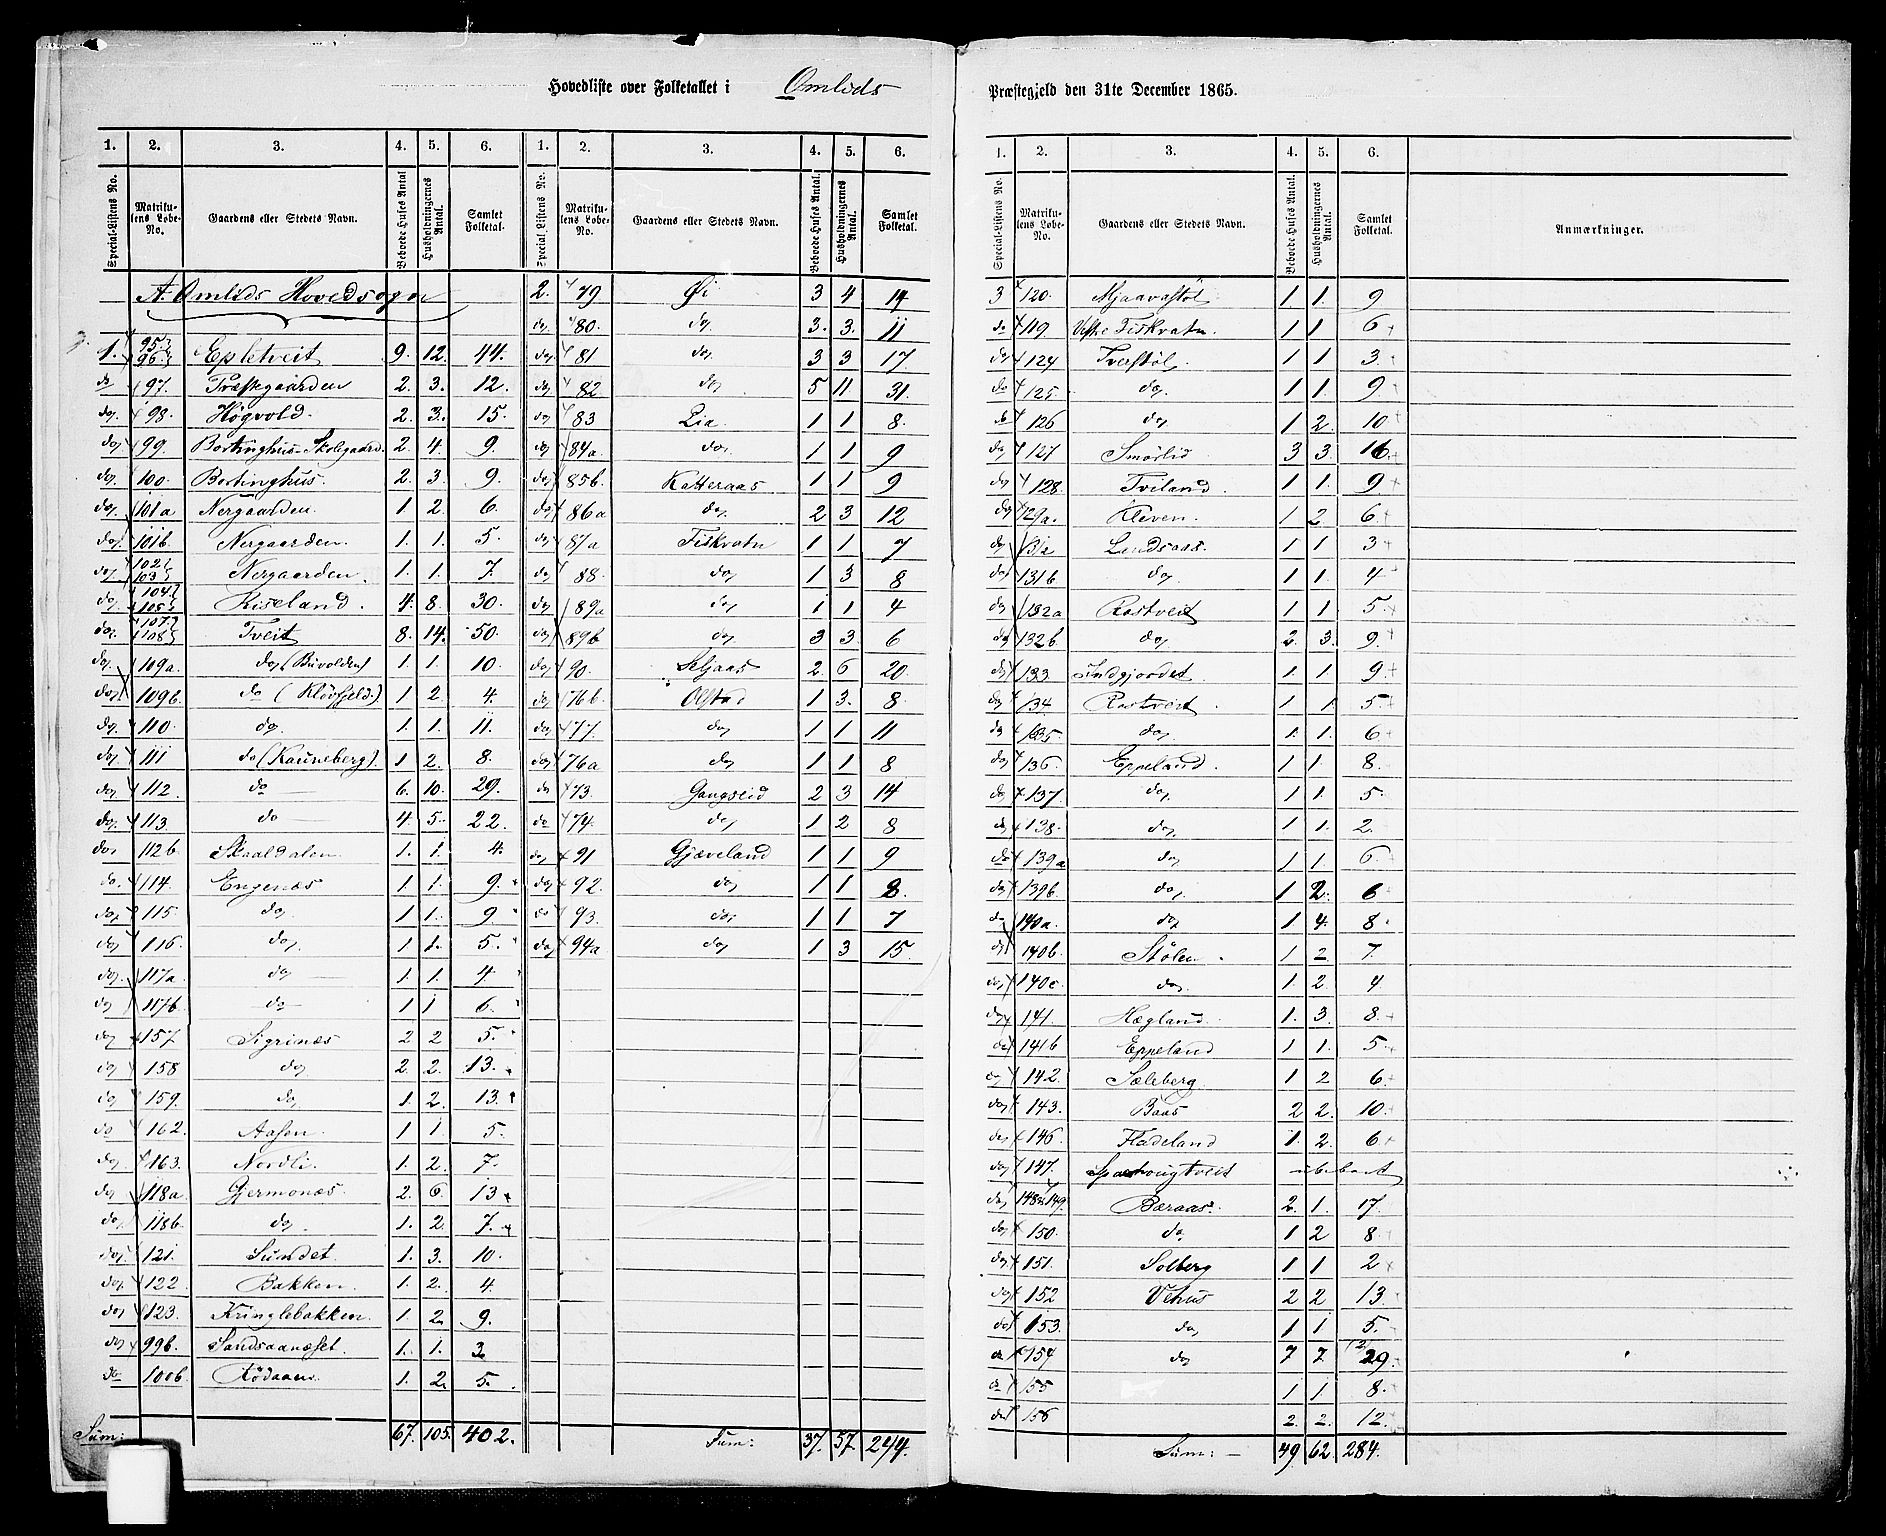 Hovedliste over Folketallet i Omlids Præstegjeld den 31te December 1865.
1. 2. 3. 4. 5. 6. 1. 2. 3. 4. 5. 6.
Special-Listens No. Matrikulens Løbe-No. Gaardens eller Stedets Navn. Beboede Huses Antal Husholdningernes Antal. Samlet Folketal. Special Listens No. Matrikulens Løbe-No. Gaardens eller Stedets Navn. Beboede Huses Antal. Husholdningernes Antal. Samlet Folketal.
A. Omlids Hovedsogn
1. 95 96. Epletveit 9. 12. 44.
do 97. Præstgaarden 2. 3. 12.
do. 98. Høgvold. 2. 3. 15.
do 99. Bortinghus-Skolegaard. 2. 4. 9.
do. 100. Bortinghus. 2. 3. 9.
do. 101a Nergaarden. 1. 2. 6.
do. 101b. Nergaarden. 1. 1. 5.
do. 102 103 Nergaarden. 1. 1. 7.
do. 104 105 Riseland. 4. 8. 30.
do. 107 108 Tveit 8. 14. 50.
do. 109a. do (Buvolden) 1. 1. 10.
do. 109b. do (Kløvfjeld.) 1. 2. 4.
do. 110. do. 1. 1. 11.
do. 111 do (Kauneberg). 1 2. 8.
do 112. do 6. 10. 29.
do. 113. do 4. 5. 22.
do. 112b Skaaldalen. 1. 1. 4.
do. 114. Engenæs 1. 1. 9.
do. 115. do. 1 1. 9.
do 116. do. 1 1. 5.
do. 117a do 1 1. 4
do 117b. do 1 1 6.
do 157. Sigrinæs 2 2 5.
do 158 do 2. 2. 13.
do 159. do 1. 2. 13.
do 162. Aasen. 1 1. 5.
do. 163. Nordli. 1. 2. 7.
do 118a. Gjermonæs. 2. 6. 13
do. 118b. do. 1. 2. 7.
do. 121. Sundet 1. 3. 10.
do. 122. Bakken. 1. 2. 4.
do 123. Kringlebakken. 1. 2. 9.
do 99b. Sandsaanæset. 1. 1. 3
do 100b. Rødaaen. 1. 2. 5.
Sum: 67. 105. 402.
2. 79 Øi 3 4 14
do. 80. do. 3. 3. 11
do. 81 do. 3 3 17
do 82. do 5 11 31
do 83 Lia. 1 1 8.
do. 84a. do. 1 1 9
do 85b. Katteraas 1 1 9
do. 86a do. 2 3 12
do 87a Fiskvatn 1 1 7
do 88. do 1 3 8
do 89a do 1 1 4
do 89b do 3 3. 6
do. 90. Seljaas 2. 6 20.
do 76b. Olstad 1 3. 8
do 77. do 1 1 11
do 76a do 1 1 8
do 73. Gangseid 2 3 14
do 74. do 1 2 8
do 91 Gjæveland 1 1 9
do 92. do 1 1 8.
do 93. do. 1 1 7
do 94a do 1 3 15.
Sum: 37. 57. 244.
1. 2. 3. 4. 5. 6.
Special-Listens No. Matrikulens Løbe-No. Gaardens eller Stedets Navn. Beboede Huses Antal. Husholdningernes Antal. Samlet Folketal. Anmærkninger.
3 120. Mjaavastøl 1. 1. 9
do 119 Vestre Fiskvatn. 1 1 6
do 124 Tverstøl. 1 1 3
do 125. do. 1 1. 9
do 126 do. 1 2. 10
do 127 Smørlid 3 3. 16
do 128. Tviland. 1 1. 9
do 129a. Kleven. 1 2 6.
do 131a Lendsaas. 1 1 3
do 131b do. 1 1. 4
do 132a Rostveit 1 1. 5.
do 132b. do. 2. 3. 9.
do 133 Indgjordet. 1. 1 9
do 134 Rostveit. 1 1. 5.
do 135. do. 1. 1. 6.
do 136. Eppeland. 1 1. 8.
do. 137. do. 1 1. 5.
do 138. do 1 1. 2.
do 139a do 1 1. 6.
do 139b. do. 1 2. 6
do 140a. do 1 4. 8
do 140b. Stølen 1 2 7.
do. 140c do. 1. 2. 4
do. 141. Hægland. 1. 3. 8.
do 141b Eppeland 1 1. 5
do 142. Sæleberg. 1 2 6.
do 143. Baas 2 2. 10.
do 146. Fladeland 1. 2. 6
do 147. ubeboet
do 148 149. Beraas. 2. 1. 17.
do 150. do 1 2 8.
do 151. Solberg 1 1 2
do 152 Vehus 2 2 13.
do 153. do 1 1 5.
do 154 do 7 7. 29.
do 155 1 1 8.
do 156 2. 2. 12.
Sum: 49. 62. 284.